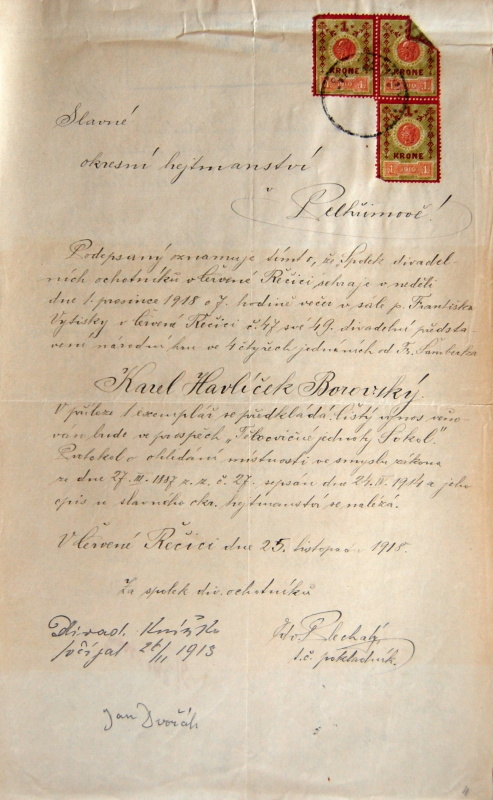 1
KRONE
1 1910 1
1
KRONE
1910 1
1
KRONE
1 1910 1
Slavné
okresní hejtmanství
v
Pelhřimově!
Podepsaný oznamuje tímto, že Spolek divadel-
ních ochotníků v Červené Řečici sehraje v neděli
dne 1. prosince 1918 o 7. hodině večer v sále p. Františka
Vyšisky v Červené Řečici č. 47 své 49. divadelní předsta
vení národní hru ve 4 čtyřech jednáních od Fr. Šamberka
Karel Havlíček Borovský.
V příloze 1 exemplář se předkládá. Čistý výnos věno
ván bude ve prospěch „Tělocvičné jednoty Sokol".
Protokol o ohledání místnosti ve smyslu zákona
ze dne 27. 1887 z. z. č. 27. sepsán dne 24. 1914 a jeho
opis u slavného okr. hejtmanství se nalézá.
V Červené Řečici dne 25. listopadu 1918.
Za spolek div. ochotníků
Divad. knížku
přijal 26/11 1913
Plechatý
t. č. pokladník.
Jan Dvořák
4